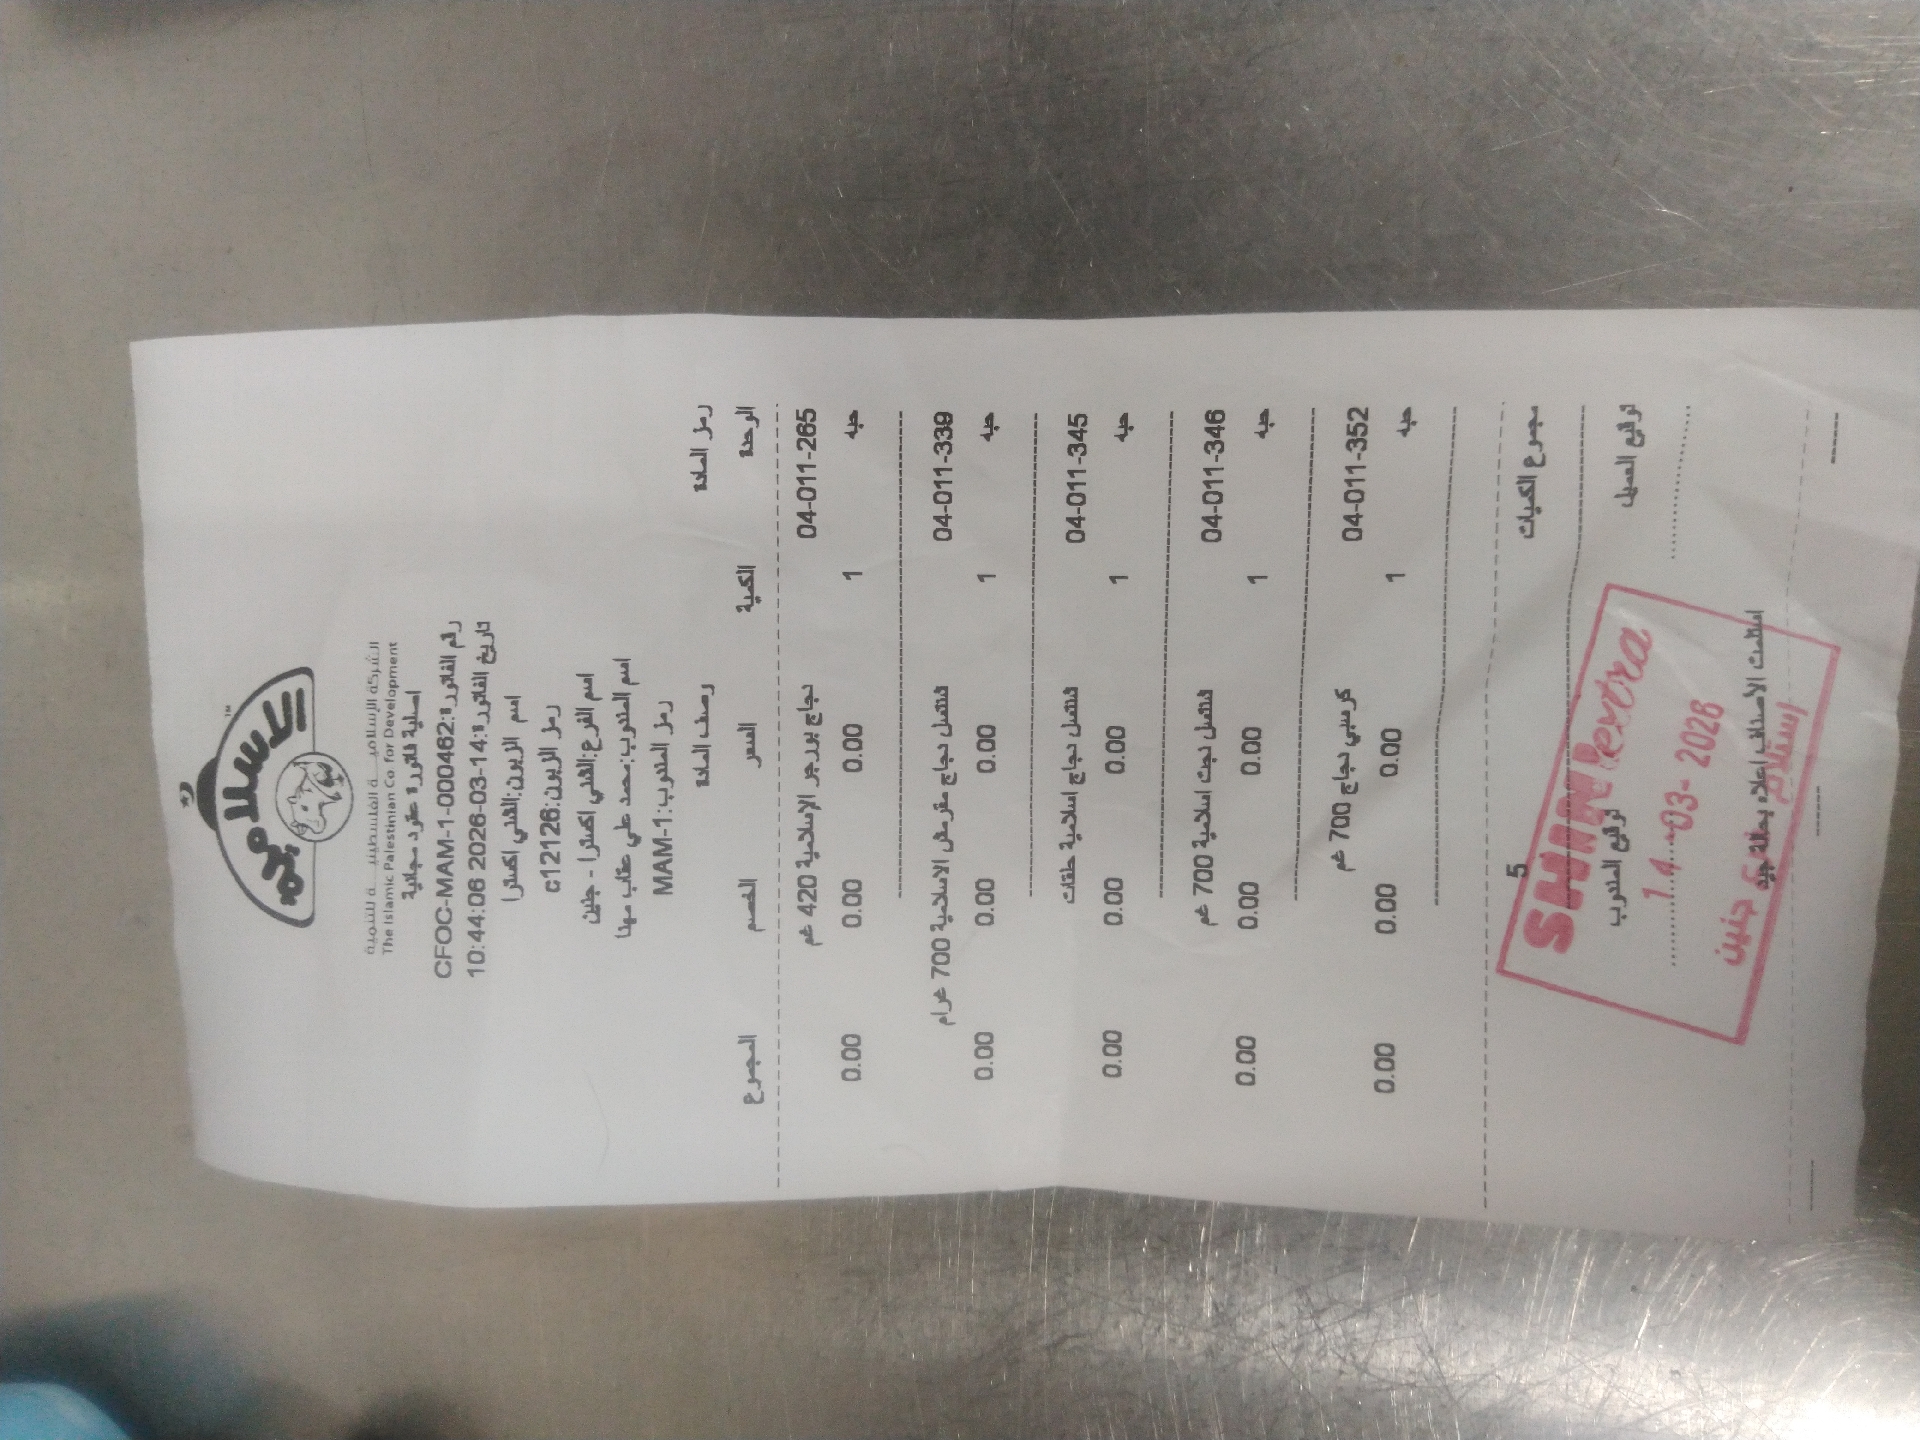 الإسلامية
TM
الشركة الإسلامية الفلسطينية للتنمية
The Islamic Palestinian Co. for Development
اصلية فاتورة عقود مجانية
رقم الفاتورة:CFOC-MAM-1-000462
تاريخ الفاتورة:14-03-2026 10:44:06
اسم الزبون:الشني اكسترا
رمز الزبون:c12126
اسم الفرع:الشني اكسترا - جنين
اسم المندوب:محمد علي عقاب مهنا
رمز المندوب:MAM-1
رمز المادة وصف المادة
الوحدة الكمية السعر الخصم المجموع
04-011-265 دجاج بورجر الإسلامية 420 غم
حبه 1 0.00 0.00 0.00
04-011-339 شنتسل دجاج مقرمش الاسلامية 700 غرام
حبه 1 0.00 0.00 0.00
04-011-345 شنتسل دجاج اسلامية حلقات
حبه 1 0.00 0.00 0.00
04-011-346 شنتسل نجت اسلامية 700 غم
حبه 1 0.00 0.00 0.00
04-011-352 كرسبي دجاج 700 غم
حبه 1 0.00 0.00 0.00
مجموع الكميات 5
توقيع العميل توقيع المندوب
استلمت الأصناف اعلاه بحالة جيدة
SHINI extra
14-03-2026
استلام
جنين